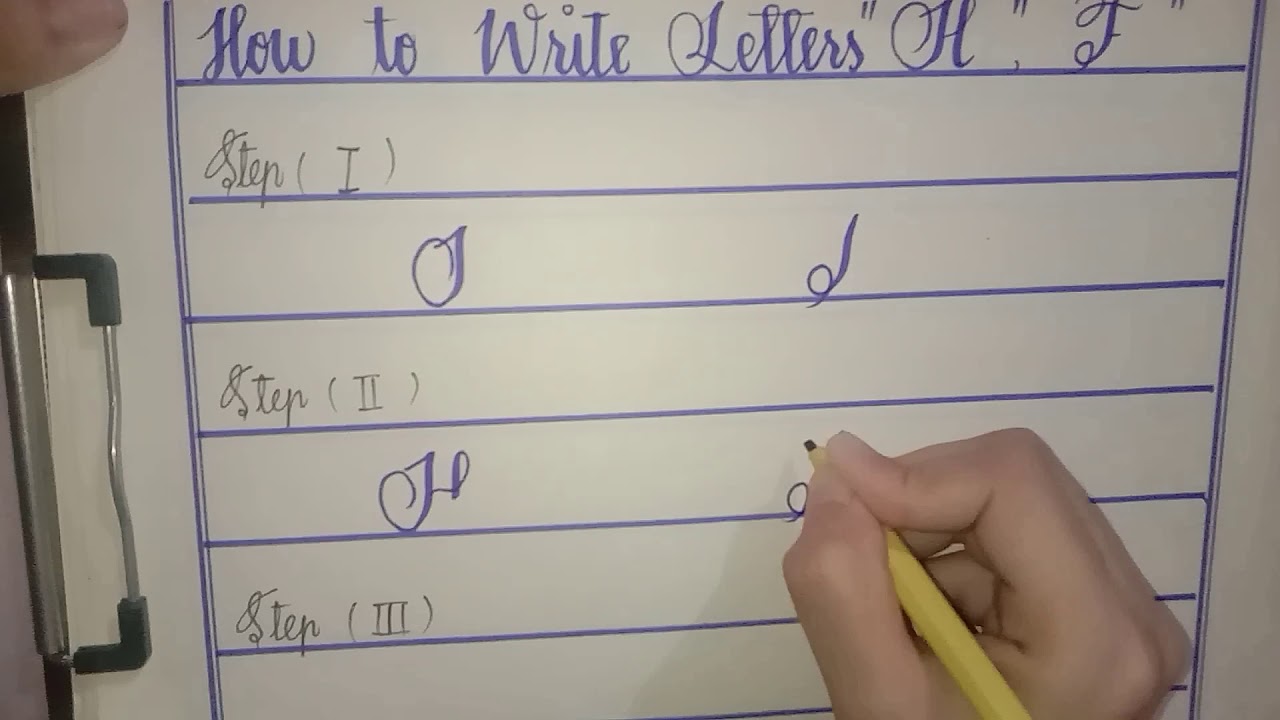 How to Write Letters "H", F"
Step ( I )
Step ( II )
H
Step ( III )